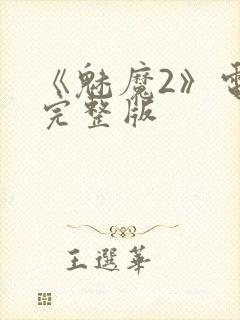 《魅魔2》电
完整版
王選華